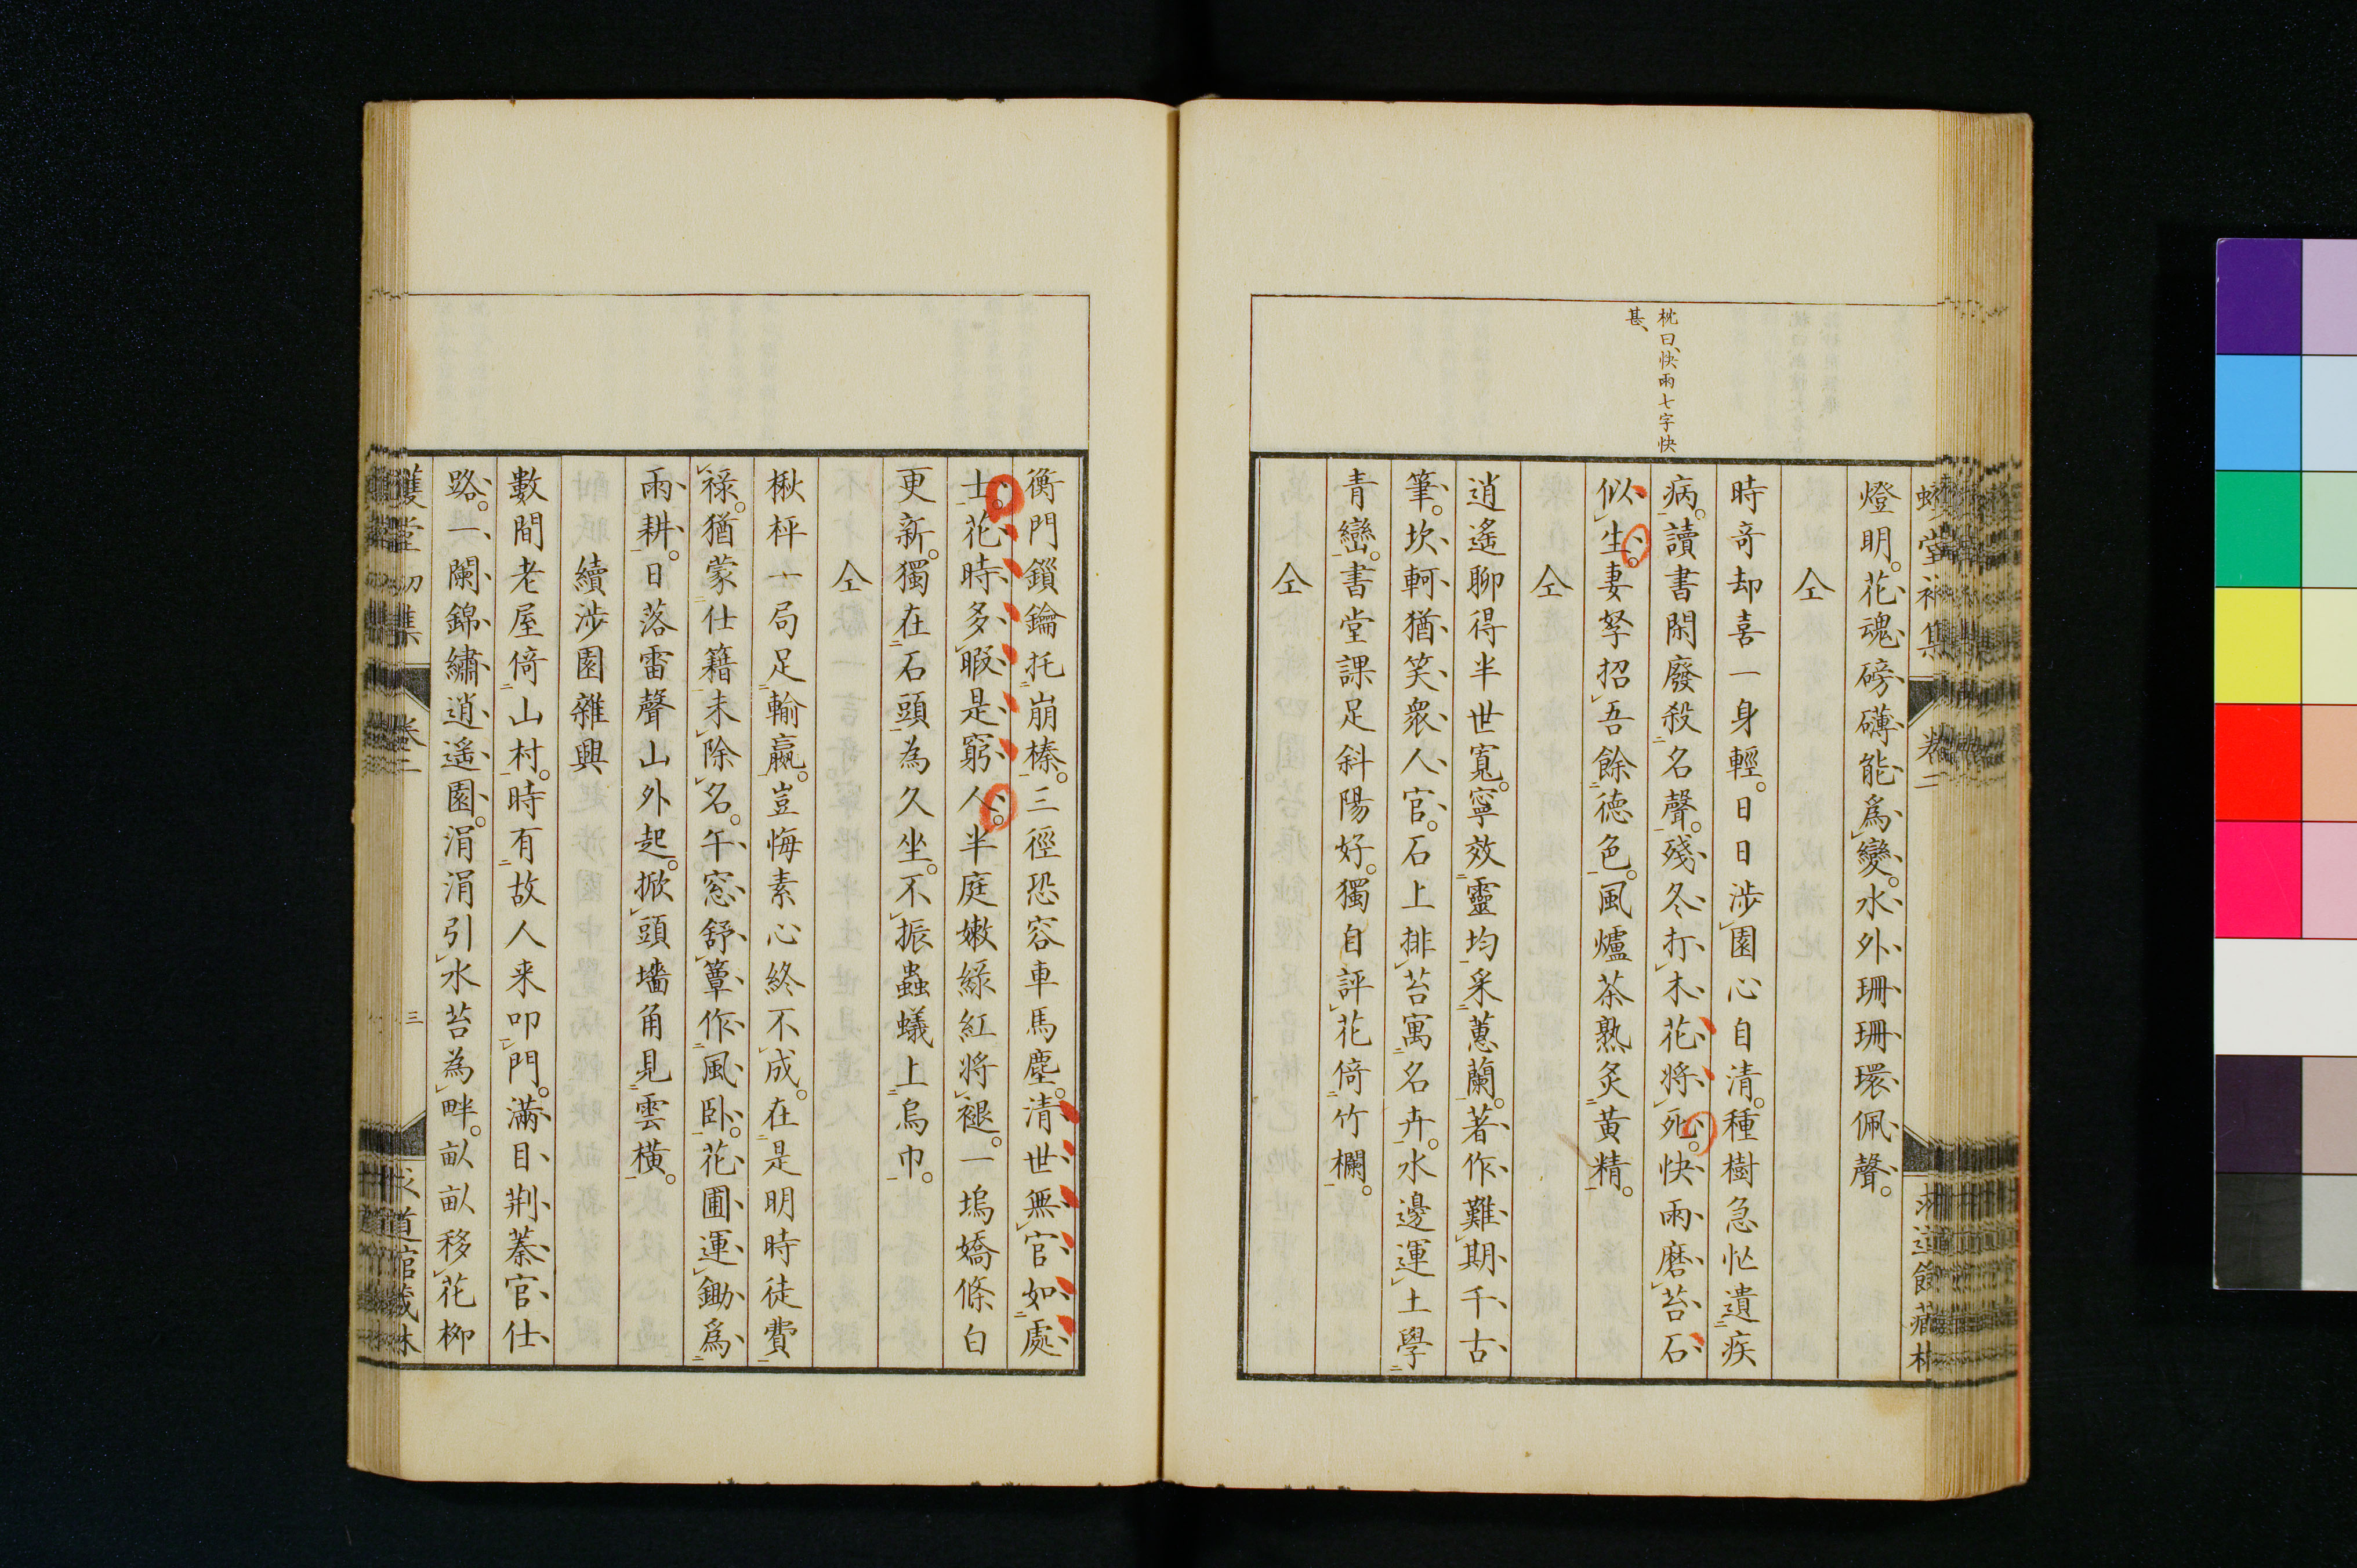 枕曰、快雨七字快
甚、
燈明。花魂磅礴能爲變。水外珊珊環佩聲。
仝
時奇却喜一身輕。日日涉園心自清。種樹急忙遺疾
病。讀書閑廢殺名聲。殘冬打木花將死。快雨磨苔石
似生。妻孥招吾餘德色。風爐茶熟炙黃精。
仝
逍遙聊得半世寬。寧效靈均采蕙蘭。著作難期千古
筆。坎軻猶笑衆人官。石上排苔寓名卉。水邊運土學
青巒。書堂課足斜陽好。獨自評花倚竹欄。
仝
衡門鎖鑰托崩榛。三徑恐容車馬塵。清世無官如處
士。花時多暇是窮人。半庭嫩綠紅將褪。一塢嬌條白
更新。獨在石頭為久坐。不振蟲蟻上烏巾。
仝
楸枰一局足輸贏。豈悔素心終不成。在是明時徒費
祿。猶蒙仕籍未除名。午窓舒簟作風臥。花圃運鋤爲
雨耕。日落雷聲山外起。掀頭墻角見雲橫。
續涉園雜興
數間老屋倚山村。時有故人来叩門。滿目荆蓁官仕
路。一闌錦繡逍遙園。涓涓引水苔為畔。畝畝移花柳
卷二
三